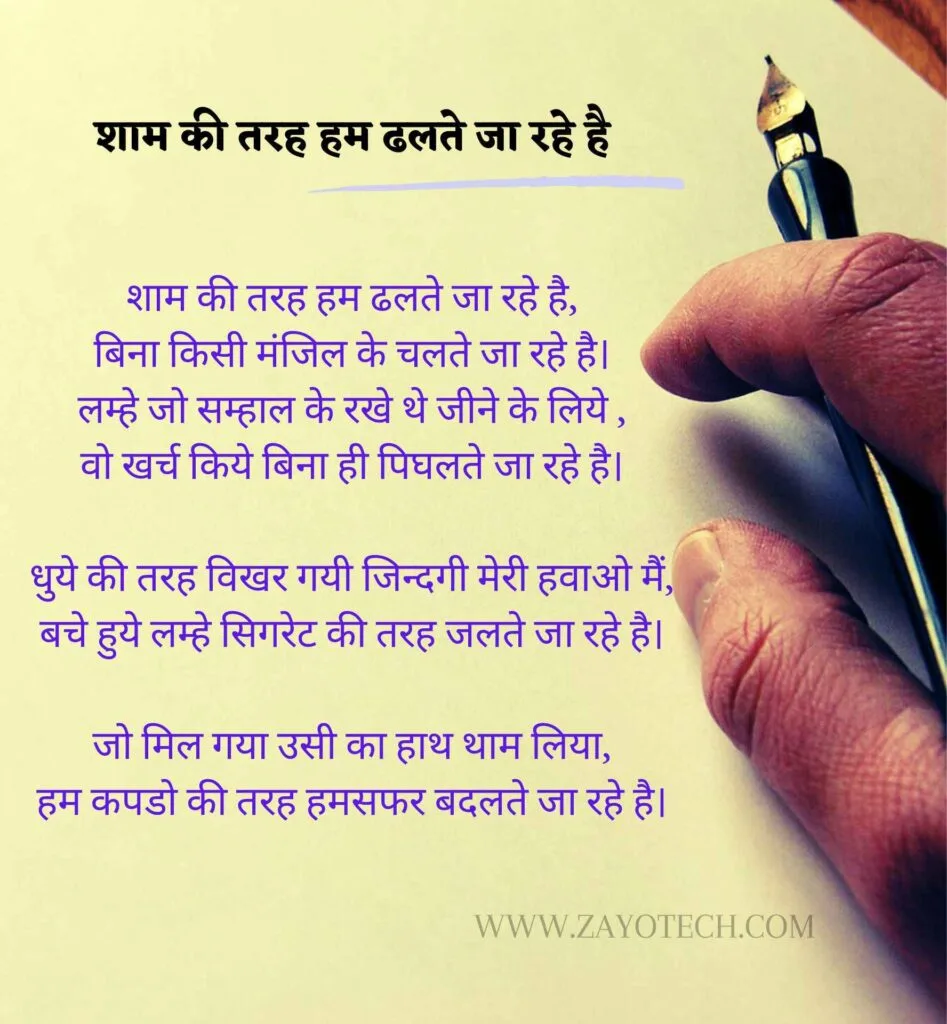 शाम की तरह हम ढलते जा रहे है
शाम की तरह हम ढलते जा रहे है,
बिना किसी मंजिल के चलते जा रहे है।
लम्हे जो सम्हाल के रखे थे जीने के लिये ,
वो खर्च किये बिना ही पिघलते जा रहे है।
धुये की तरह विखर गयी जिन्दगी मेरी हवाओ मैं,
बचे हुये लम्हे सिगरेट की तरह जलते जा रहे है।
जो मिल गया उसी का हाथ थाम लिया,
हम कपडो की तरह हमसफर बदलते जा रहे है।
WWW.ZAYOTECH.COM